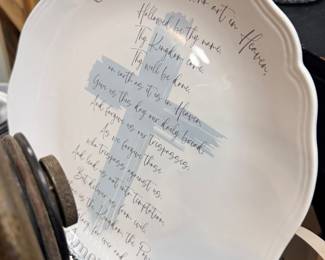 art in Heaven,
Hallowed be thy name.
Thy Kingdom come,
Thy will be done,
on earth as it is in Heaven.
Give us this day our daily bread.
And forgive us our trespasses,
As we forgive those
who trespass against us.
And lead us not into temptation,
But deliver us from evil.
the Kingdom, the
and